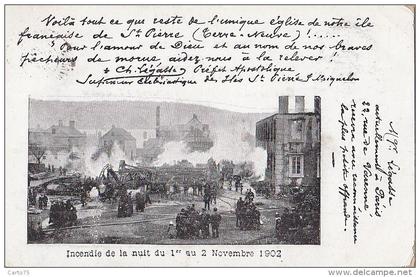 Voilà tout ce que reste de l'unique église de notre île
française de St Pierre (Terre-Neuve) !....
Pour l'amour de Dieu et au nom de nos braves
pêcheurs de morue aidez-nous à la relever !
+ Ch. Légasse, Préfet Apostolique
Supérieur Ecclésiastique des Iles St Pierre & Miquelon
Mgr Légasse
actuellement à Paris
23, rue de Varenne
recevra avec reconnaissance
la plus petite offrande.
Incendie de la nuit du 1er au 2 Novembre 1902
© delcampe.net